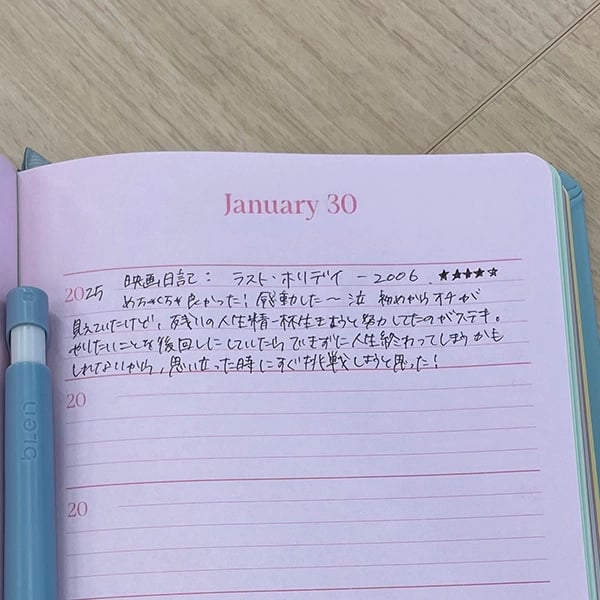 January 30
2025 映画日記: ラスト・ホリデイ -2006 ★★★★★
めちゃくちゃ良かった! 感動した〜泣 初めからオチが
見えていたけど、残りの人生精一杯生きようと努力してたのがステキ。
やりたいことを後回しにしていたらできずに人生終わってしまうかも
しれないから、思い立った時にすぐ挑戦しようと思った!
20
20
bLen